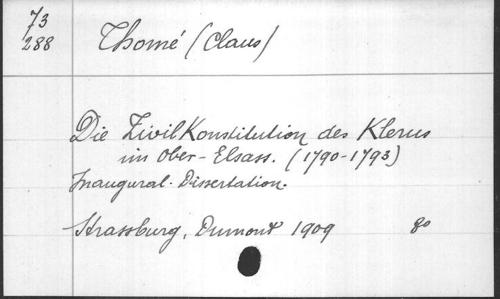 73
288
Thomé (Claus)
Die Zivilkonstitution des Klerus
im Ober-Elsass. (1790-1793)
Inaugural-Dissertation.
Strassburg, Dumont 1909 8o